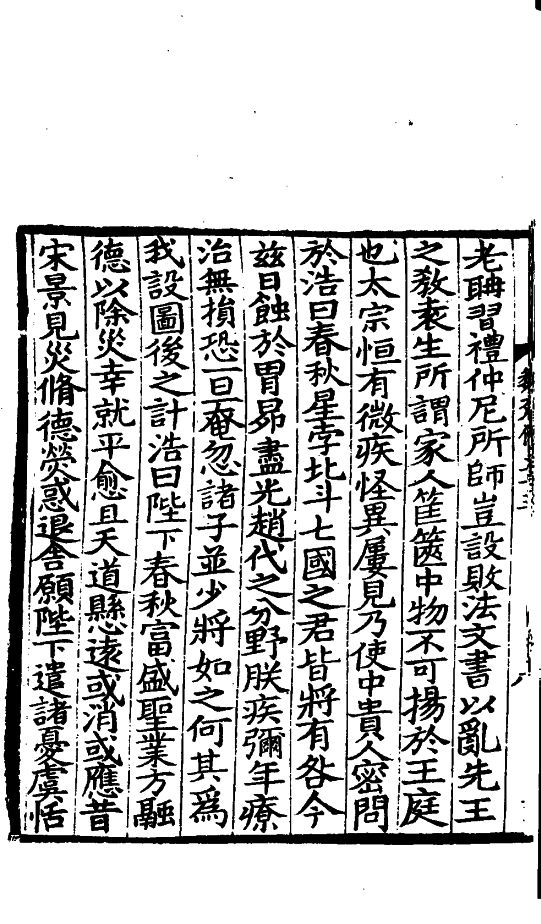 老聃習禮仲尼所師豈設敗法文書以亂先王
之敎袁生所謂家人筐篋中物不可揚於王庭
也太宗恒有微疾怪異屢見乃使中貴人密問
於浩曰春秋星孛北斗七國之君皆將有咎今
兹日蝕於胃昴盡光趙代之分野朕疾彌年療
治無損恐一旦奄忽諸子並少將如之何其爲
我設圖後之計浩曰陛下春秋富盛聖業方融
德以除災幸就平愈且天道懸遠或消或應昔
宋景見災脩德熒惑退舍願陛下遣諸憂虞恬